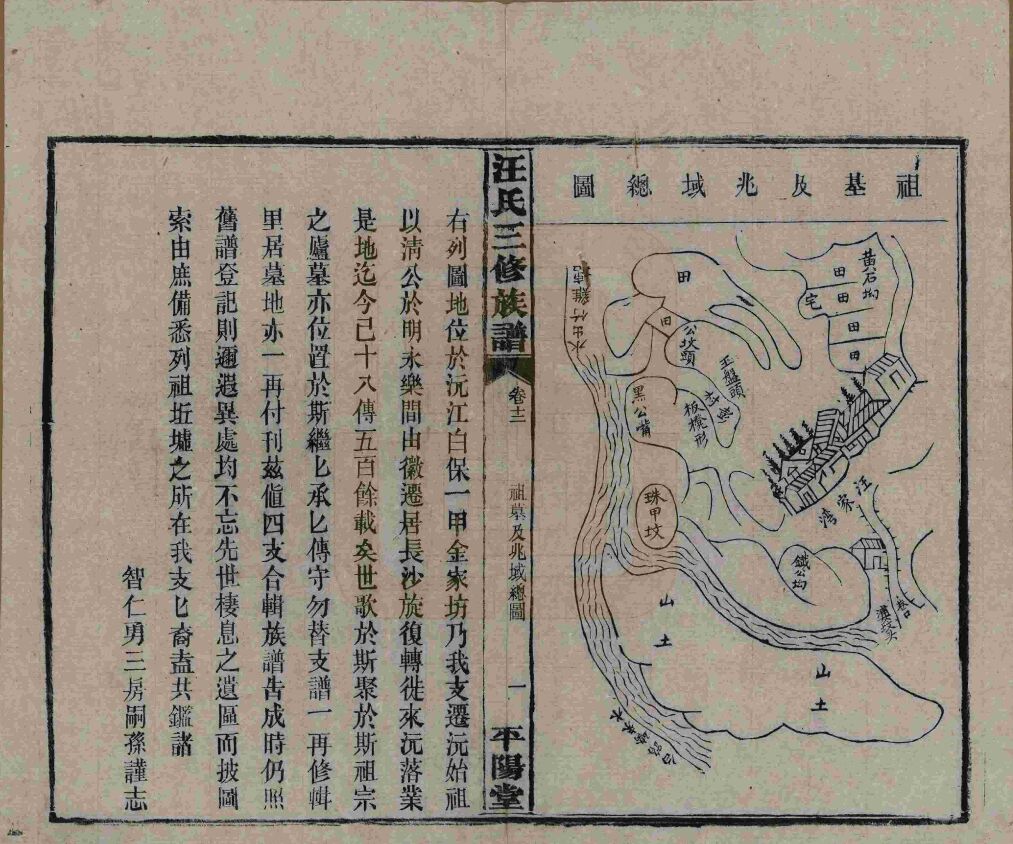 祖基及兆域總圖
黃石坳
田
田
田
田
宅
田
田
公坟頭
玉盤頭
板櫈形
黑公嘴
珠甲坟
汪家湾
鐵公坳
山土
山土
汪氏三修族譜
卷十二
祖墓及兆域總圖
一
平陽堂
右列圖地位於沅江白保一甲金家坊乃我支遷沅始祖
以清公於明永樂間由徽遷居長沙旋復轉徙來沅落業
是地迄今已十八傳五百餘載矣世歌於斯聚於斯祖宗
之廬墓亦位置於斯繼匕承匕傳守勿替支譜一再修輯
里居墓地亦一再付刊兹值四支合輯族譜告成時仍照
舊譜登記則邇遐異處均不忘先世棲息之遺區而披圖
索由庶備悉列祖坵墟之所在我支匕裔盍共鑑諸
智仁勇三房嗣孫謹志